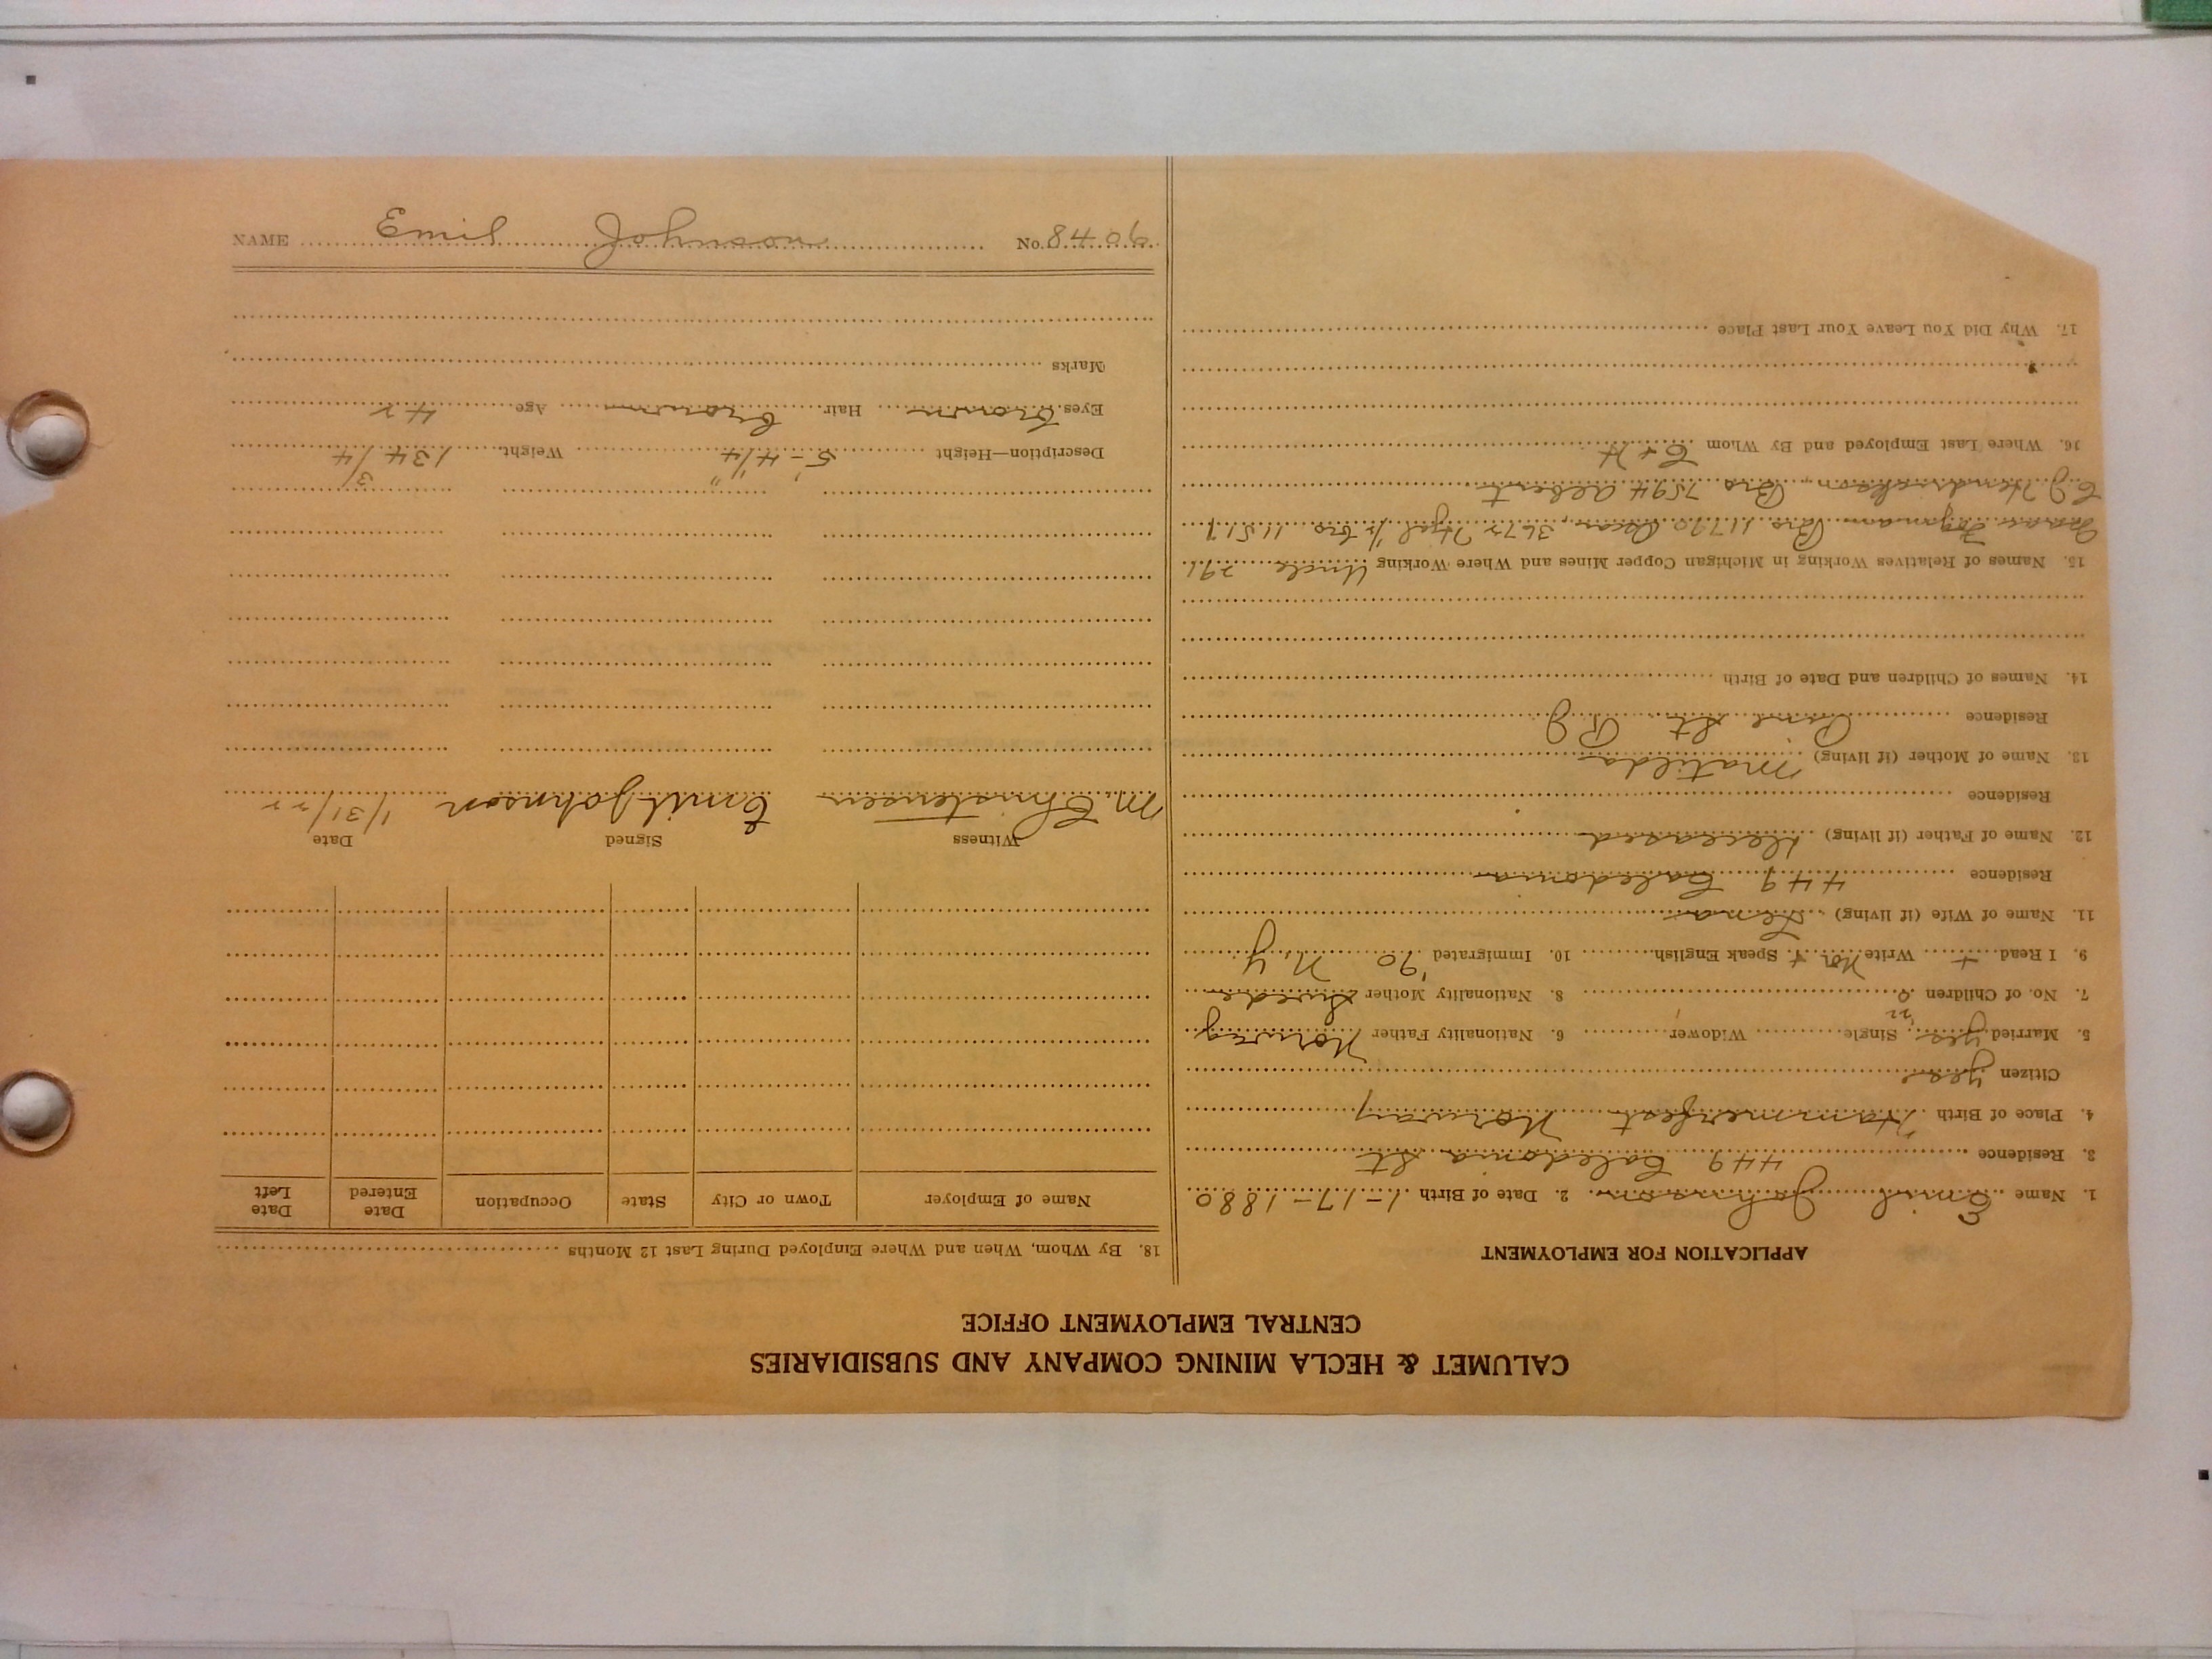 CALUMET & HECLA MINING COMPANY AND SUBSIDIARIES
CENTRAL EMPLOYMENT OFFICE
APPLICATION FOR EMPLOYMENT
1. Name Emil Johnson 2. Date of Birth 1-17-1880
3. Residence 449 Caledonia St
4. Place of Birth Hammerfest Norway
Citizen yes
5. Married yes '22 Single Widower 6. Nationality Father Norway
7. No. of Children 0 8. Nationality Mother Swede
9. I Read + Write Nor + Speak English 10. Immigrated '90 N.Y
11. Name of Wife (if living) Lena
Residence 449 Caledonia
12. Name of Father (if living) deceased
Residence
13. Name of Mother (if living) Matilda
Residence Pine St
14. Names of Children and Date of Birth
15. Names of Relatives Working in Michigan Copper Mines and Where Working Uncle 291
Bro 11790 Oscar, 3672 1/2 bro 11517
Hendrickson, Bro 7594 Albert
16. Where Last Employed and By Whom C + H
17. Why Did You Leave Your Last Place
18. By Whom, When and Where Employed During Last 12 Months
Name of Employer Town or City State Occupation Date Entered Date Left
Witness Signed Date
M. Christensen Emil Johnson 1/31/22
Description—Height 5'-4 1/4" Weight 134 3/4
Eyes brown Hair brown Age 42
Marks
NAME Emil Johnson No. 8406